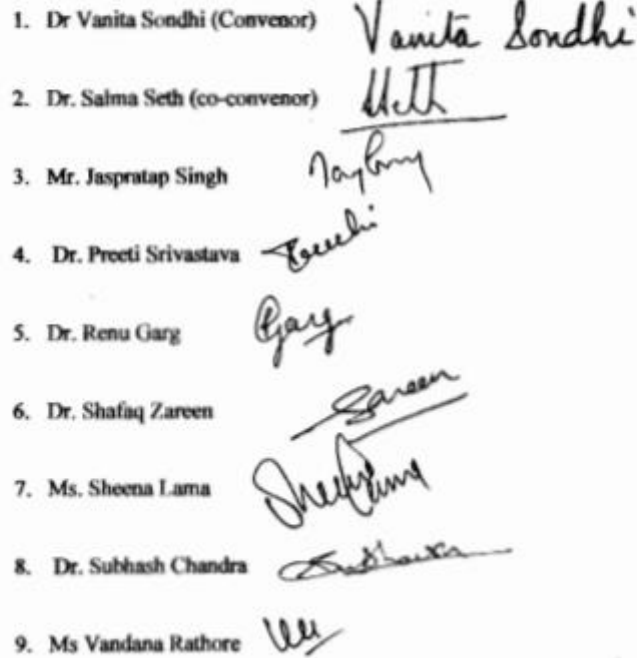 1. Dr Vanita Sondhi (Convenor) Vanita Sondhi
2. Dr. Salma Seth (co-convenor)
3. Mr. Jaspratap Singh
4. Dr. Preeti Srivastava
5. Dr. Renu Garg Garg
6. Dr. Shafaq Zareen Zareen
7. Ms. Sheena Lama
8. Dr. Subhash Chandra
9. Ms Vandana Rathore